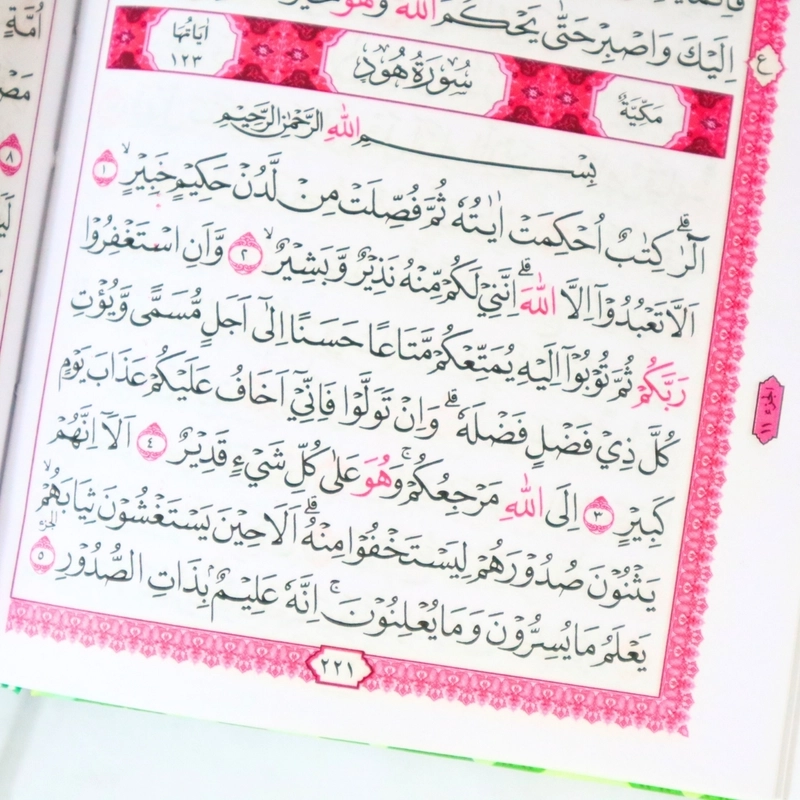 اِلَيْكَ وَاصْبِرْ حَتّٰى يَحْكُمَ اللّٰهُ وَهُوَ
مَكِّيَّةٌ سُوْرَةُ هُوْدٍ اٰيَاتُهَا ١٢٣
بِسْــــــمِ اللّٰهِ الرَّحْمٰنِ الرَّحِيْمِ
الٓرٰ ۗ كِتٰبٌ اُحْكِمَتْ اٰيٰتُهٗ ثُمَّ فُصِّلَتْ مِنْ لَّدُنْ حَكِيْمٍ خَبِيْرٍ ۙ ١
اَلَّا تَعْبُدُوْٓا اِلَّا اللّٰهَ ۗ اِنَّنِيْ لَكُمْ مِّنْهُ نَذِيْرٌ وَّبَشِيْرٌ ۙ ٢ وَّاَنِ اسْتَغْفِرُوْا
رَبَّكُمْ ثُمَّ تُوْبُوْٓا اِلَيْهِ يُمَتِّعْكُمْ مَّتَاعًا حَسَنًا اِلٰٓى اَجَلٍ مُّسَمًّى وَّيُؤْتِ
كُلَّ ذِيْ فَضْلٍ فَضْلَهٗ ۗ وَاِنْ تَوَلَّوْا فَاِنِّيْٓ اَخَافُ عَلَيْكُمْ عَذَابَ يَوْمٍ
كَبِيْرٍ ٣ اِلَى اللّٰهِ مَرْجِعُكُمْ ۚ وَهُوَ عَلٰى كُلِّ شَيْءٍ قَدِيْرٌ ٤ اَلَآ اِنَّهُمْ
يَثْنُوْنَ صُدُوْرَهُمْ لِيَسْتَخْفُوْا مِنْهُ ۗ اَلَا حِيْنَ يَسْتَغْشُوْنَ ثِيَابَهُمْ ۙ
يَعْلَمُ مَا يُسِرُّوْنَ وَمَا يُعْلِنُوْنَ ۚ اِنَّهٗ عَلِيْمٌ ۢ بِذَاتِ الصُّدُوْرِ ٥
الجزء
٢٢١
ع
الجزء ١١
اُمَّةٍ
٨